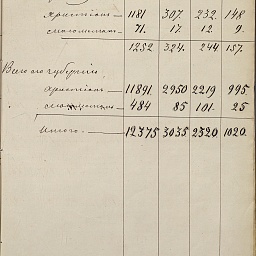 христіанъ — 1181. 307. 232. 148
71. 17. 12. 9.
1252. 324. 244. 157.
Всего по губерніи,
христіанъ — 11891. 2950 2219 995
484 85 101. 25
Итого. — 12375 3035 2320 1020.